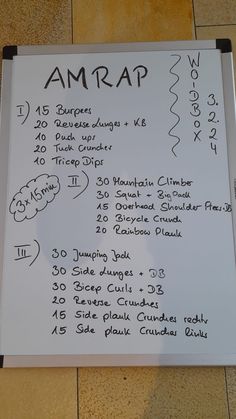 AMRAP
WOIDBOX
3.2.24
I) 15 Burpees
20 Reverse Lunges + KB
10 Push ups
20 Tuck Crunches
10 Tricep Dips
3x15min
II) 30 Mountain Climber
30 Squat + Big Pack
15 Overhead Shoulder Press DB
20 Bicycle Crunch
20 Rainbow Plank
III) 30 Jumping Jack
30 Side Lunges + DB
30 Bicep Curls + DB
20 Reverse Crunches
15 Side plank Crunches rechts
15 Side plank Crunches links